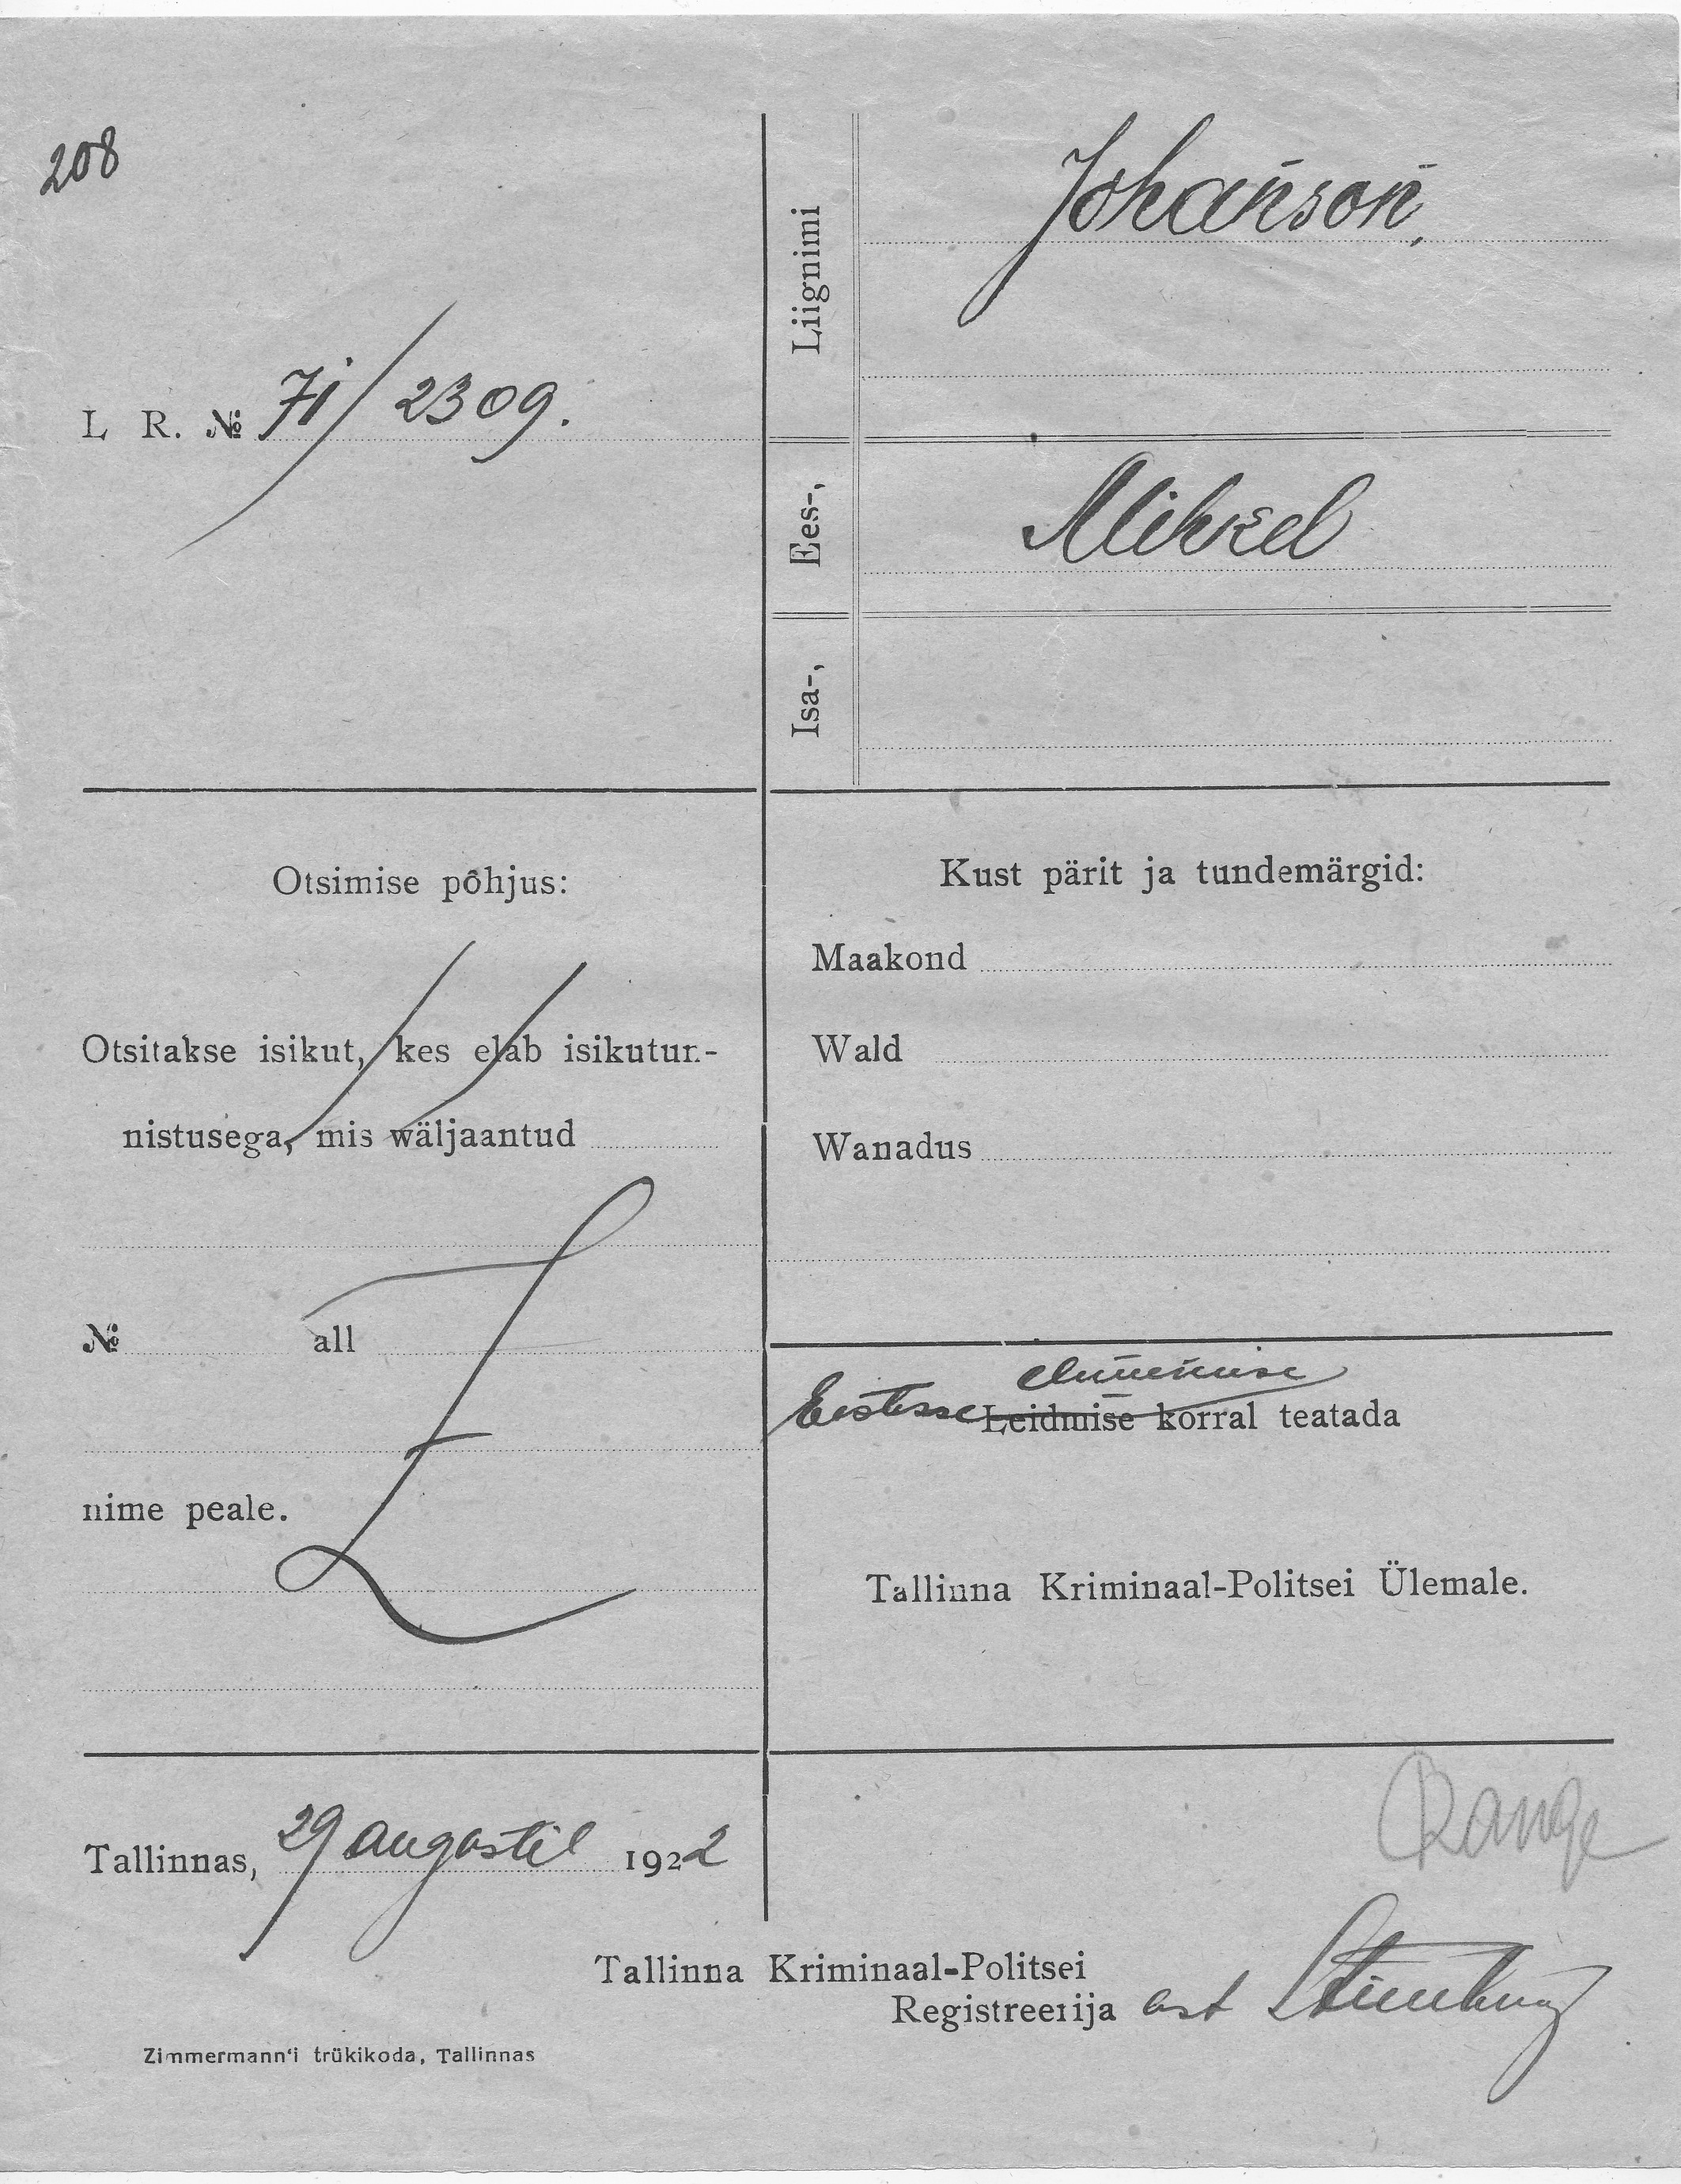 208
L R. № 71/2309.
Liignimi
Johanson,
Ees-,
Mihkel
Isa-,
Otsimise põhjus:
Otsitakse isikut, kes elab isikutun-
nistusega, mis wäljaantud
№ all
nime peale.
Kust pärit ja tundemärgid:
Maakond
Wald
Wanadus
ilmumise
Eestisse Leidmise korral teatada
Tallinna Kriminaal-Politsei Ülemale.
Tallinnas, 29 augustil 1922
Range
Tallinna Kriminaal-Politsei
Registreerija ast
Zimmermann'i trükikoda, Tallinnas